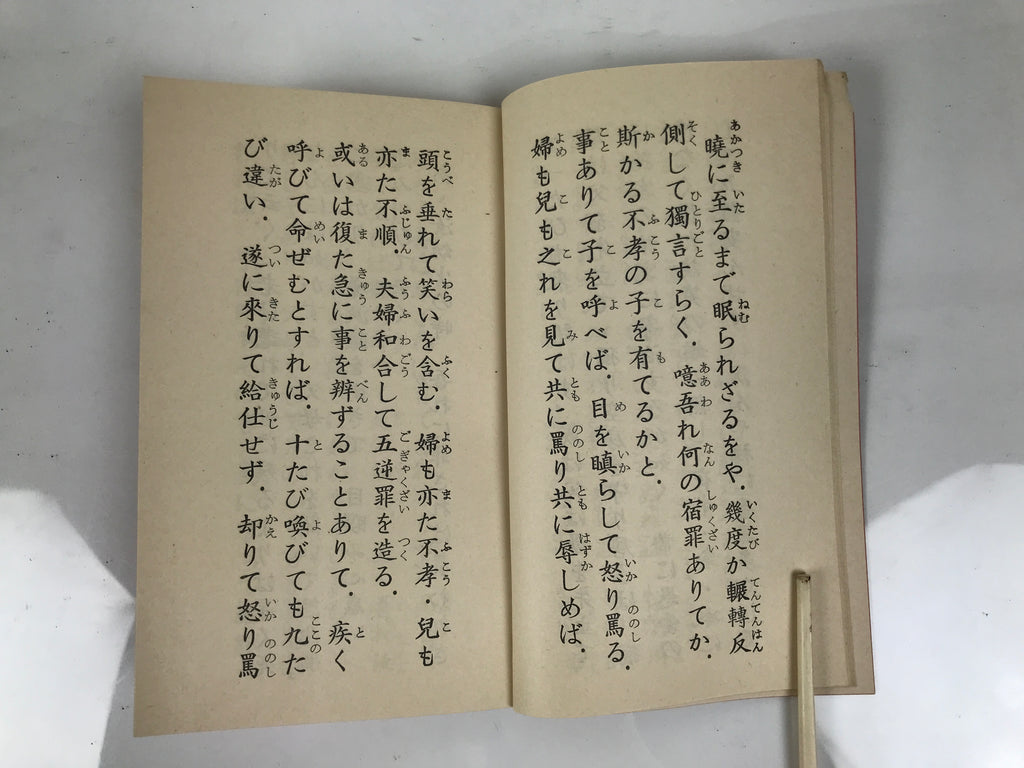 曉に至るまで眠られざるをや．幾度か輾轉反
側して獨言すらく．噫吾れ何の宿罪ありてか．
斯かる不孝の子を有てるかと．
事ありて子を呼べば．目を瞋らして怒り罵る．
婦も兒も之れを見て共に罵り共に辱しめば．
頭を垂れて笑いを含む．婦も亦た不孝．兒も
亦た不順．夫婦和合して五逆罪を造る．
或いは復た急に事を辨ずることありて．疾く
呼びて命ぜむとすれば．十たび喚びても九た
び違い．遂に來りて給仕せず．却りて怒り罵